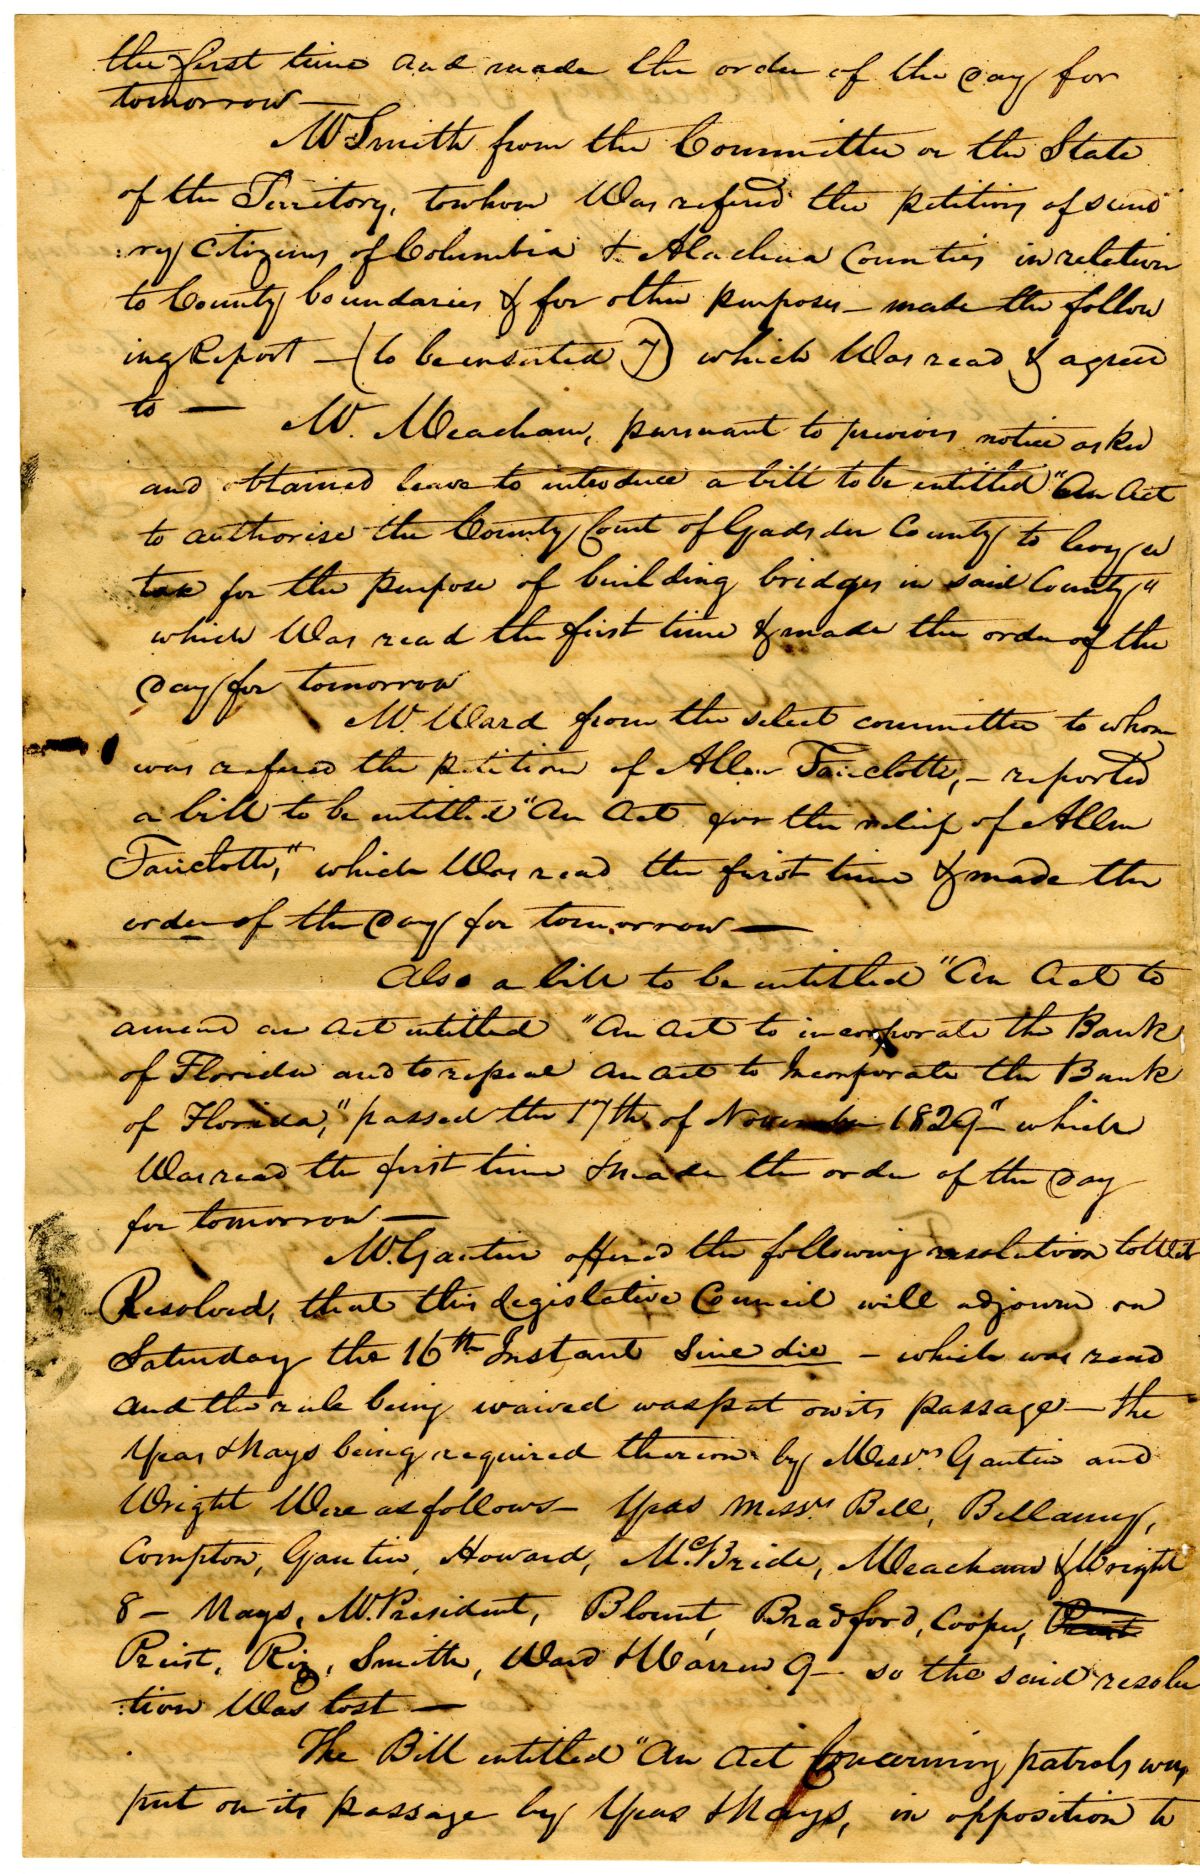 the first time and made the order of the day for
tomorrow —
Mr Smith from the Committee on the State
of the Territory, to whom Was refered the petition of sund
:ry citizens of Columbia & Alachua Counties in relation
to County boundaries & for other purposes — made the follow
ing Report — (to be inserted 7) which Was read & agreed
to —
Mr. Meacham, pursuant to previous notice asked
and obtained leave to introduce a bill to be entitled "An Act
to authorise the County Court of Gadsden County to levy a
tax for the purpose of building bridges in said County"
which Was read the first time & made the order of the
day for tomorrow
Mr. Ward from the select committee to whom
was refered the petition of Allen Faircloth, — reported
a bill to be entitled "An Act for the relief of Allen
Faircloth," which Was read the first time & made the
order of the day for tomorrow —
Also a bill to be entitled "An Act to
amend an act entitled "An act to incorporate the Bank
of Florida and to repeal an act to Incorporate the Bank
of Florida," passed the 17th of November 1829" which
Was read the first time & made the order of the day
for tomorrow —
Mr. Gautier offered the following resolution to Wit
Resolved, that this Legislative Council will adjourn on
Saturday the 16th Instant Sine die — which was read
and the rule being waived was put on its passage — the
Yeas & Nays being required thereon by Messrs Gautier and
Wright Were as follows — Yeas Messrs Bell, Bellamy,
Compton, Gautier, Howard, McBride, Meacham & Wright
8 — Nays, Mr. President, Blount, Bradford, Cooper, Priest
Priest, Riz, Smith, Ward & Warren 9 — so the said resolu
:tion Was lost —
The Bill entitled "An Act Concerning patrols was
put on its passage by Yeas & Nays, in opposition to